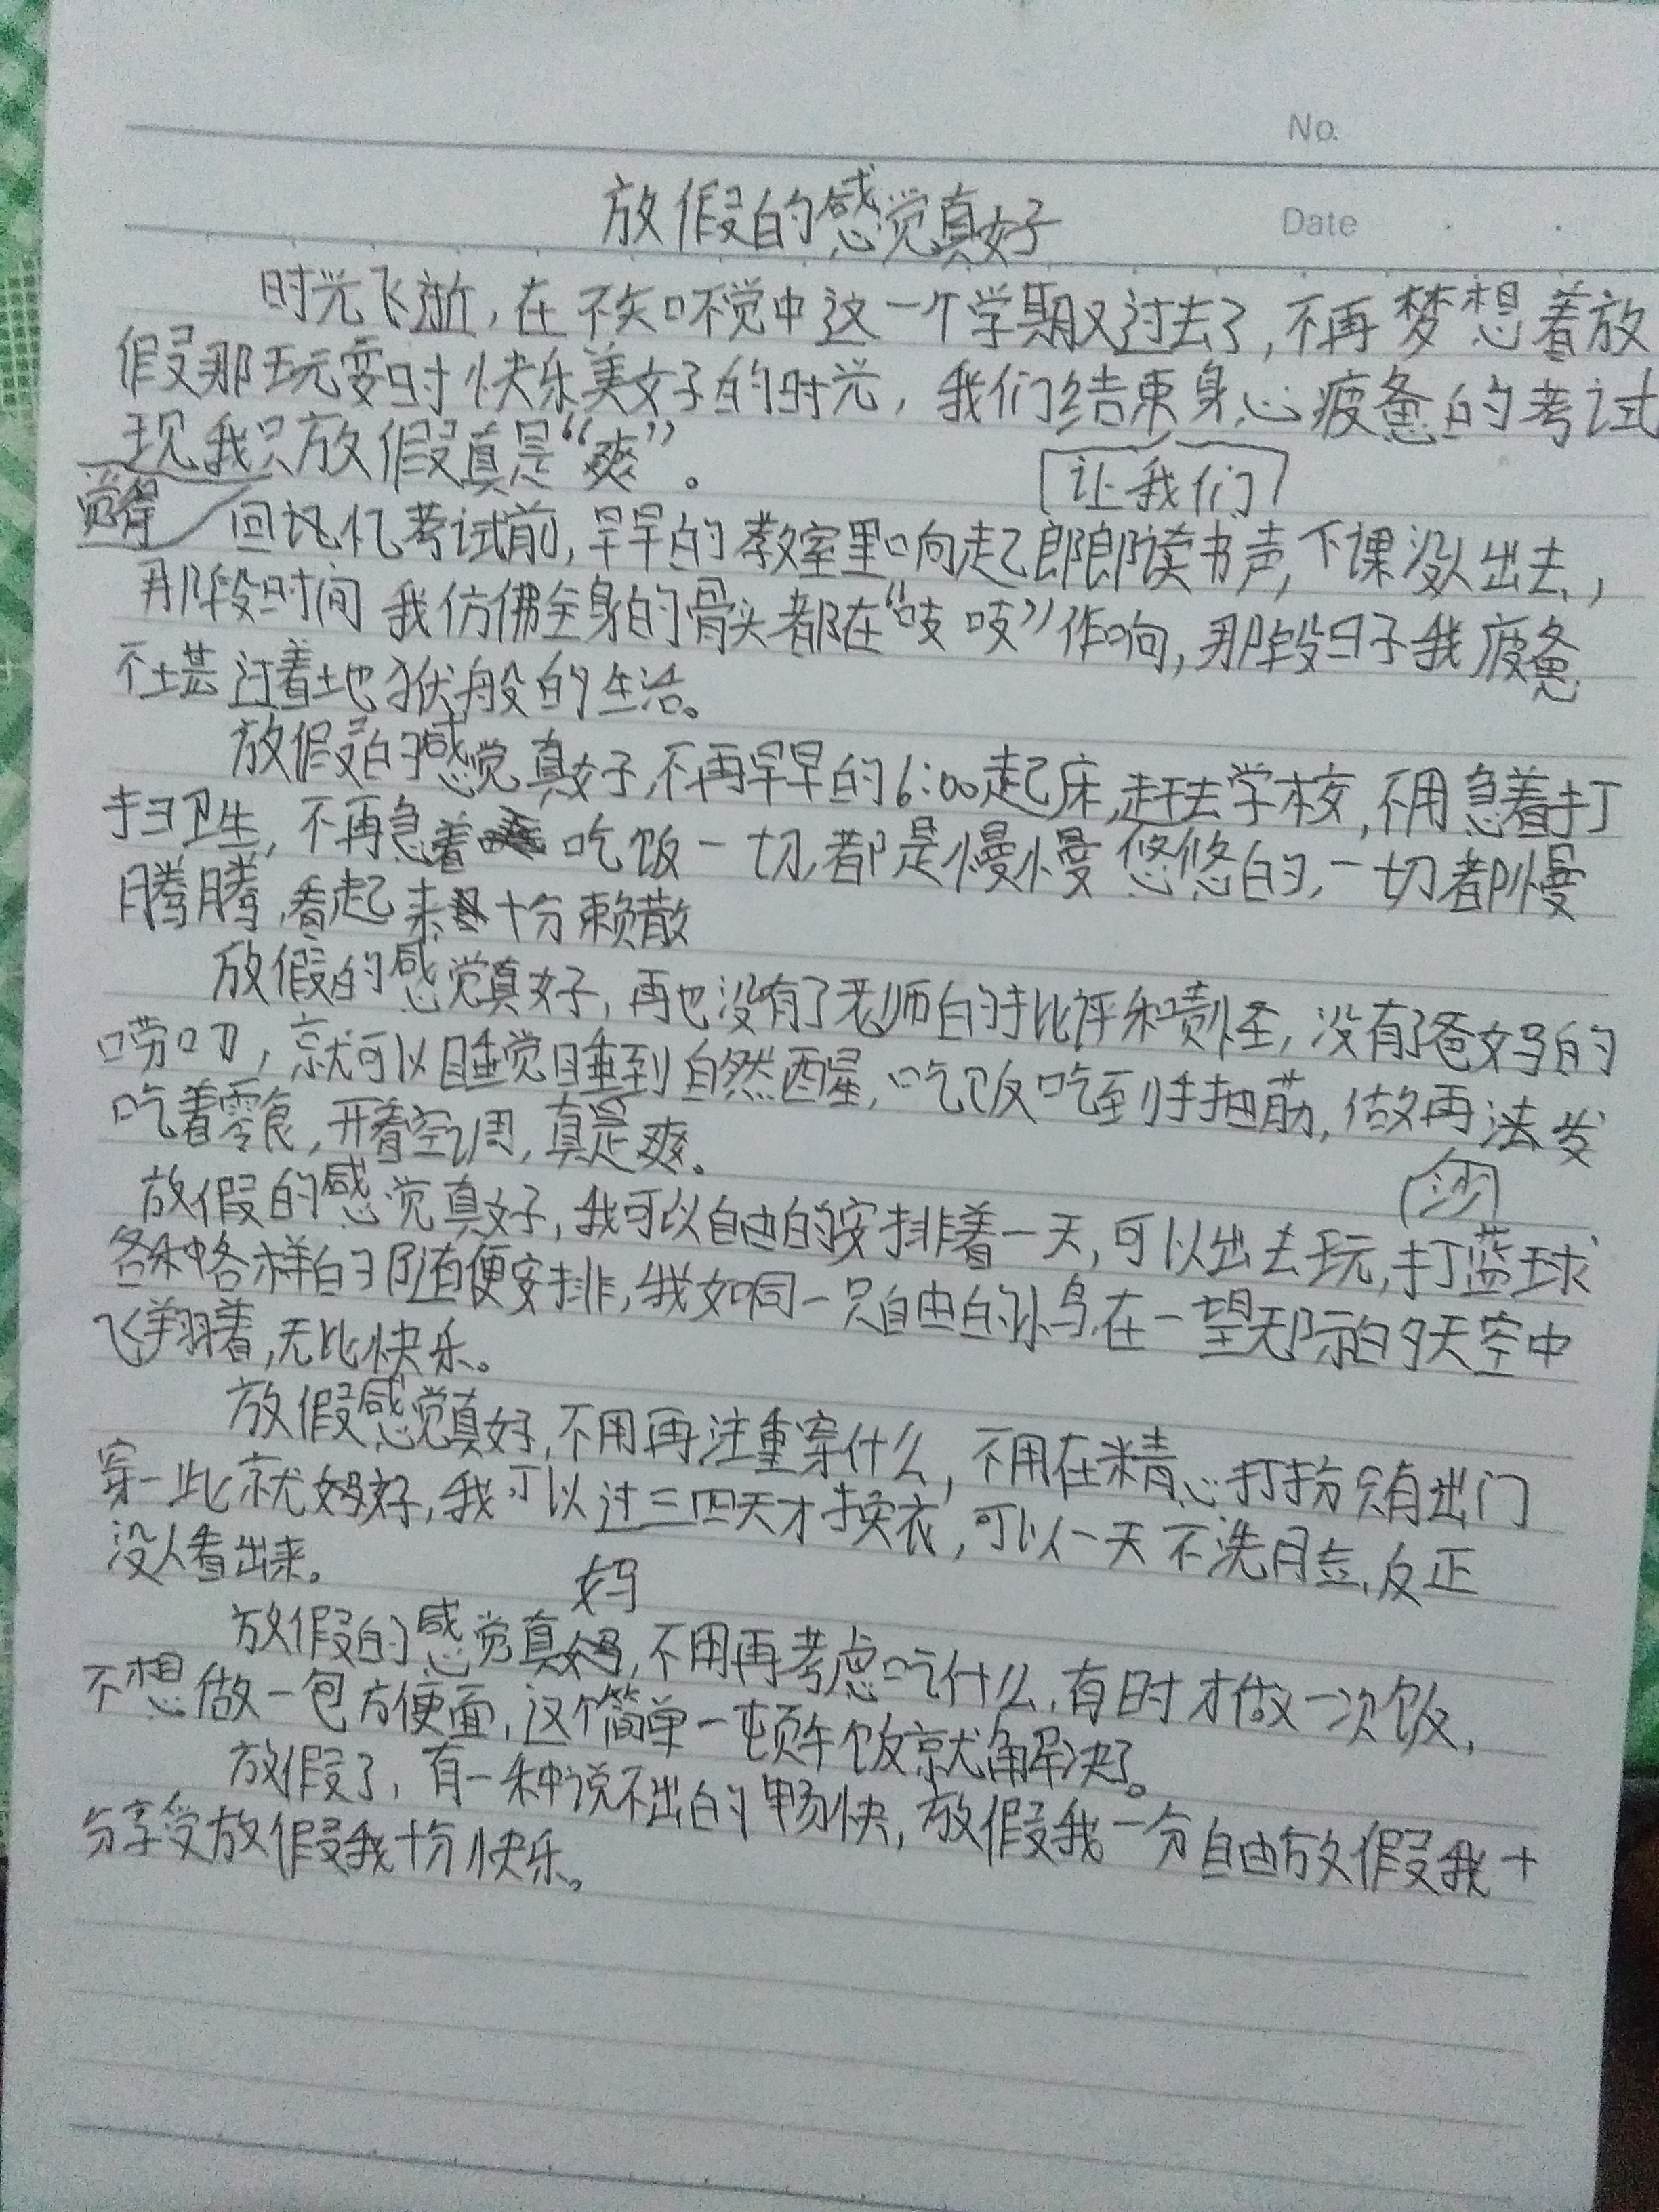 No.
放假的感觉真好
Date
时光飞逝,在不知不觉中这一个学期又过去了,不再梦想着放
假那玩耍时快乐美好的时光,我们结束身心疲惫的考试
现我只放假真是“爽”。
让我们
觉得
回忆考试前,早早的教室里响起郎郎读书声,下课没人出去,
那段时间我仿佛全身的骨头都在“吱吱”作响,那段日子我疲惫
不堪过着地狱般的生活。
放假的感觉真好,不再早早的6:00起床,赶去学校,不用急着打
扫卫生,不再急着吃饭一切,都是慢慢悠悠的,一切都慢
腾腾,看起来十分赖散
放假的感觉真好,再也没有了老师的批评和责怪,没有了爸妈的
唠叨,就可以睡觉睡到自然醒,吃饭吃到手抽筋,做再沙发
吃着零食,开着空调,真是爽。
放假的感觉真好,我可以自由的安排着一天,可以出去玩,打蓝球
各种各样的随便安排,我如同一只自由的小鸟,在一望无际的天空中
飞翔着,无比快乐。
放假感觉真好,不用再注重穿什么,不用在精心打扮只有出门
穿一些就好,我可以过三四天才换衣,可以一天不洗脸,反正
没人看出来。
妈
放假的感觉真,不用再考虑吃什么,有时才做一次饭,
不想做一包方便面,这个简单一顿午饭就解决了。
放假了,有一种说不出的畅快,放假我一分自由放假我十
分享受放假我十分快乐。